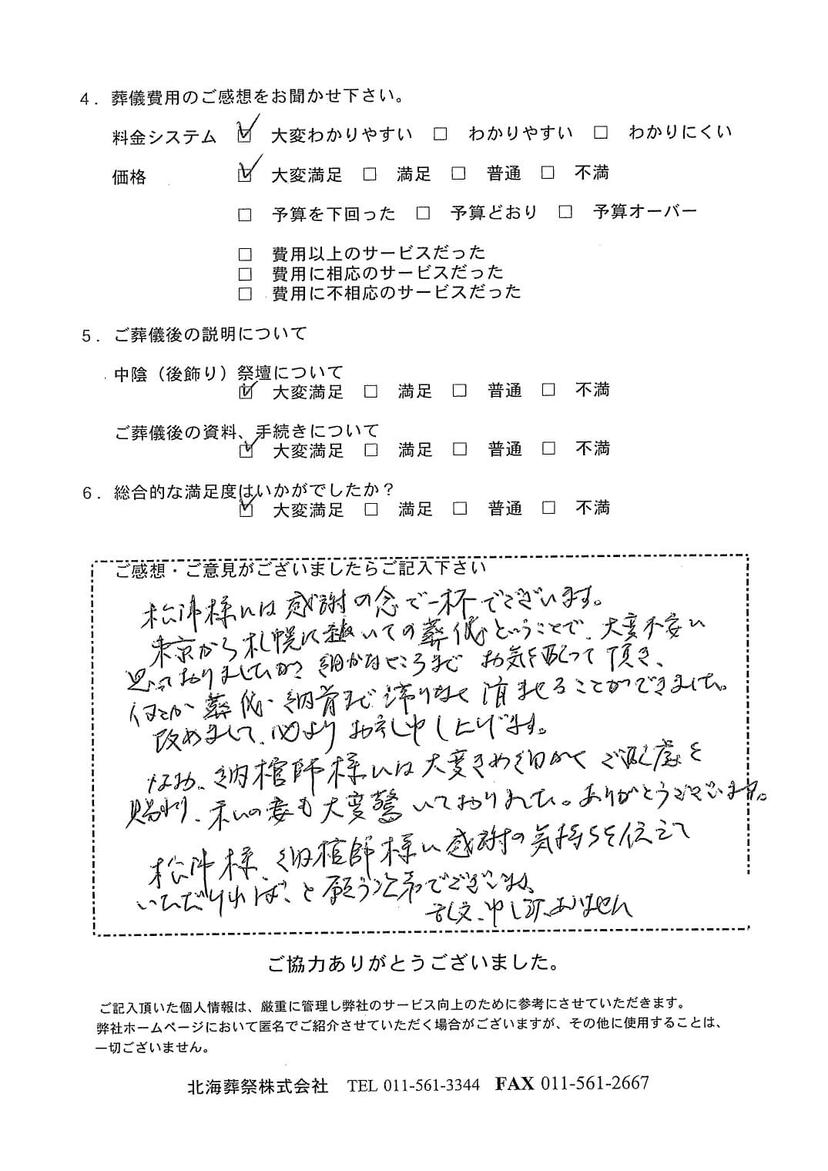 4．葬儀費用のご感想をお聞かせ下さい。
料金システム ☑ 大変わかりやすい □ わかりやすい □ わかりにくい
価格 ☑ 大変満足 □ 満足 □ 普通 □ 不満
□ 予算を下回った □ 予算どおり □ 予算オーバー
□ 費用以上のサービスだった
□ 費用に相応のサービスだった
□ 費用に不相応のサービスだった
5．ご葬儀後の説明について
中陰（後飾り）祭壇について
☑ 大変満足 □ 満足 □ 普通 □ 不満
ご葬儀後の資料、手続きについて
☑ 大変満足 □ 満足 □ 普通 □ 不満
6．総合的な満足度はいかがでしたか？
☑ 大変満足 □ 満足 □ 普通 □ 不満
ご感想・ご意見がございましたらご記入下さい
様には感謝の念で一杯でございます。
東京から札幌に赴いての葬儀ということで、大変不安に
思っておりましたが、細かなところまでお気を配って頂き、
何とか葬儀・納骨まで滞りなく済ませることができました。
改めまして、心よりお礼申し上げます。
なお、納棺師様には大変きめ細かくご配慮を
賜わり、私の妻も大変驚いておりました。ありがとうございます。
様、納棺師様に感謝の気持ちを伝えて
いただければ、と願う次第でございます。
乱文、申し訳ありません
ご協力ありがとうございました。
ご記入頂いた個人情報は、厳重に管理し弊社のサービス向上のために参考にさせていただきます。
弊社ホームページにおいて匿名でご紹介させていただく場合がございますが、その他に使用することは、
一切ございません。
北海葬祭株式会社 TEL 011-561-3344 FAX 011-561-2667